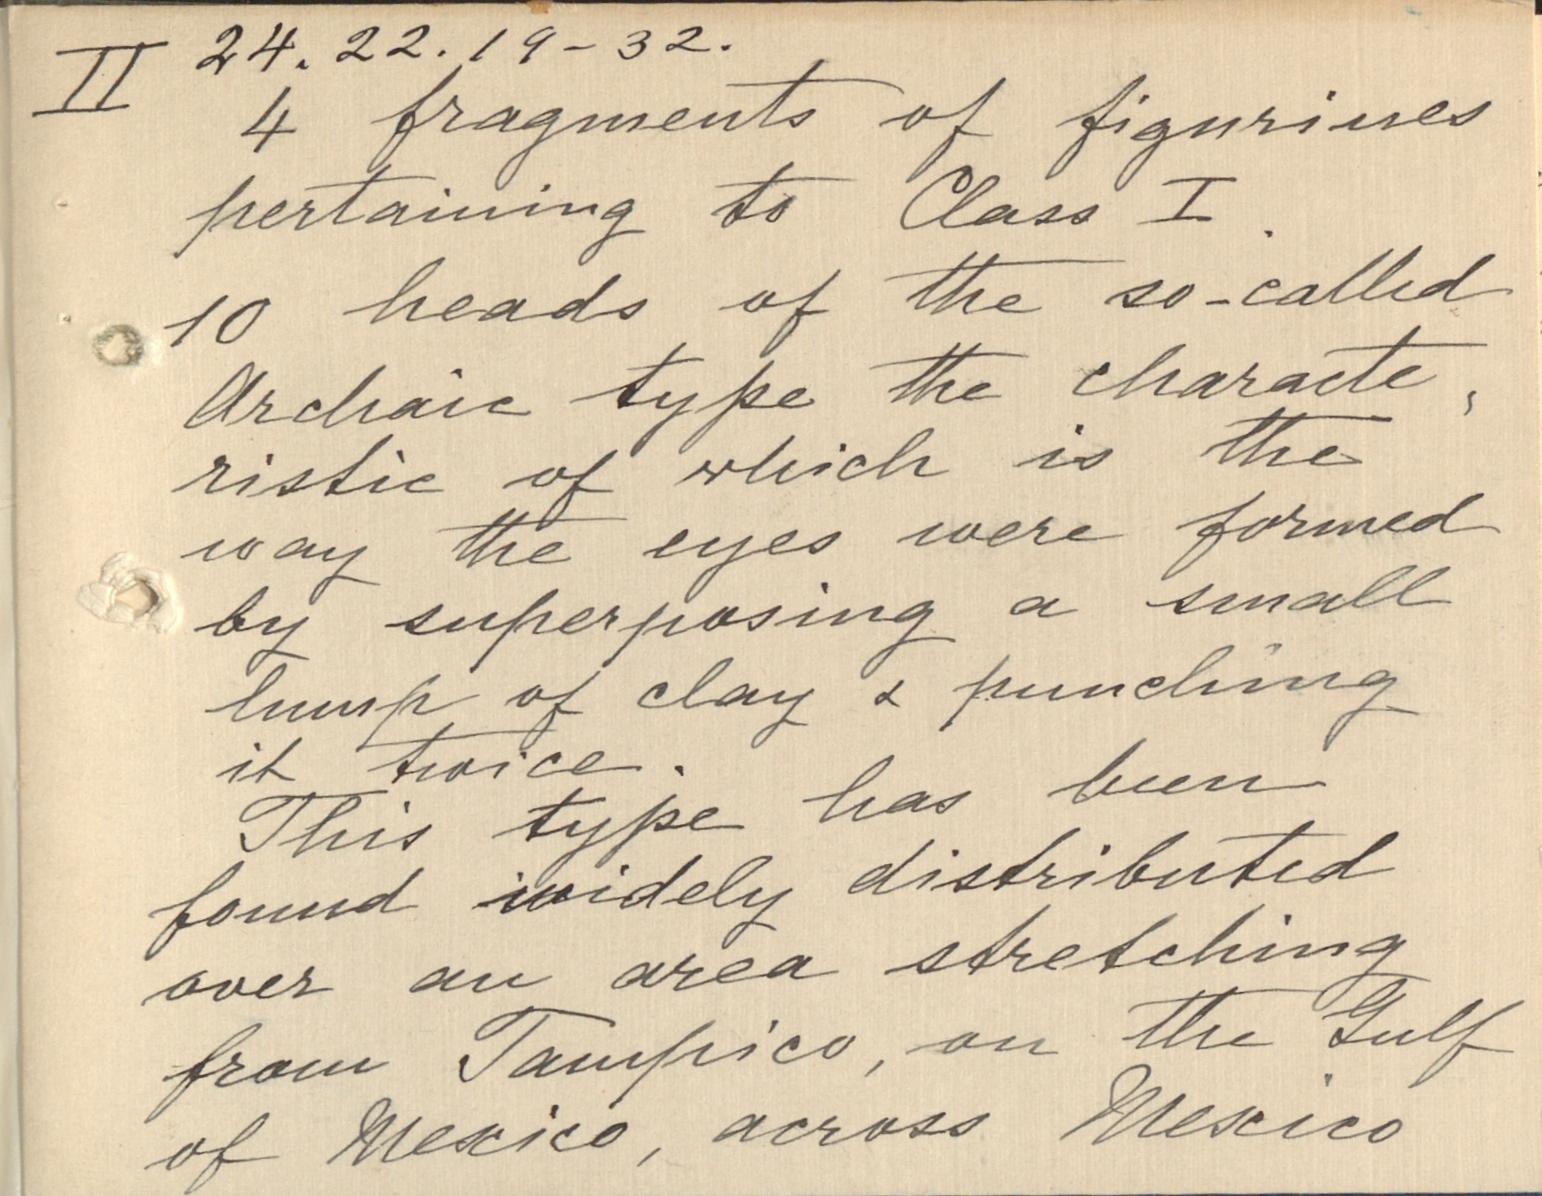 II 24.22.19-32.
4 fragments of figurines
pertaining to Class I.
10 heads of the so-called
Archaic type the characte,
ristic of which is the
way the eyes were formed
by superposing a small
lump of clay & punching
it twice.
This type has been
found widely distributed
over an area stretching
from Tampico, on the Gulf
of Mexico, across Mexico